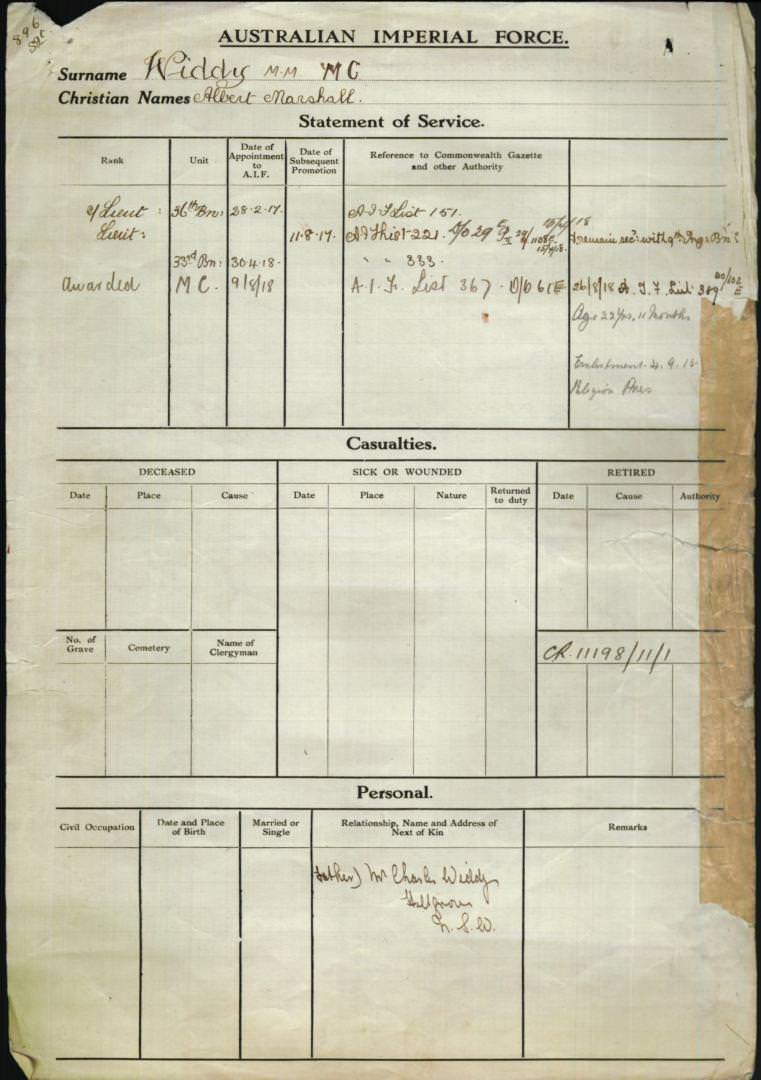 896
Sgt
AUSTRALIAN IMPERIAL FORCE.
A
Surname Widdy M.M MC
Christian Names Albert Marshall.
Statement of Service.
Rank Unit Date of Appointment to A.I.F. Date of Subsequent Promotion Reference to Commonwealth Gazette and other Authority
2/Lieut: 36th Bn: 28-2-17. A.I.F List 151.
Lieut: 11.8.17. A.I.F List 221. D/O 29 to remain sec: with 9th Bn:
33rd Bn: 30.4.18. " " 333.
Awarded MC. 9/8/18 A.I.F. List 367. D/O 61E 26/8/18 A.I.F List 389
Age 22 Yrs. 11 Months
Enlistment 4.9.15
Religion Pres
Casualties.
DECEASED SICK OR WOUNDED RETIRED
Date Place Cause Date Place Nature Returned to duty Date Cause Authority
No. of Grave Cemetery Name of Clergyman
CR.11198/11/1
Personal.
Civil Occupation Date and Place of Birth Married or Single Relationship, Name and Address of Next of Kin Remarks
Father) Mr Charles Widdy
Hillgrove
N.S.W.